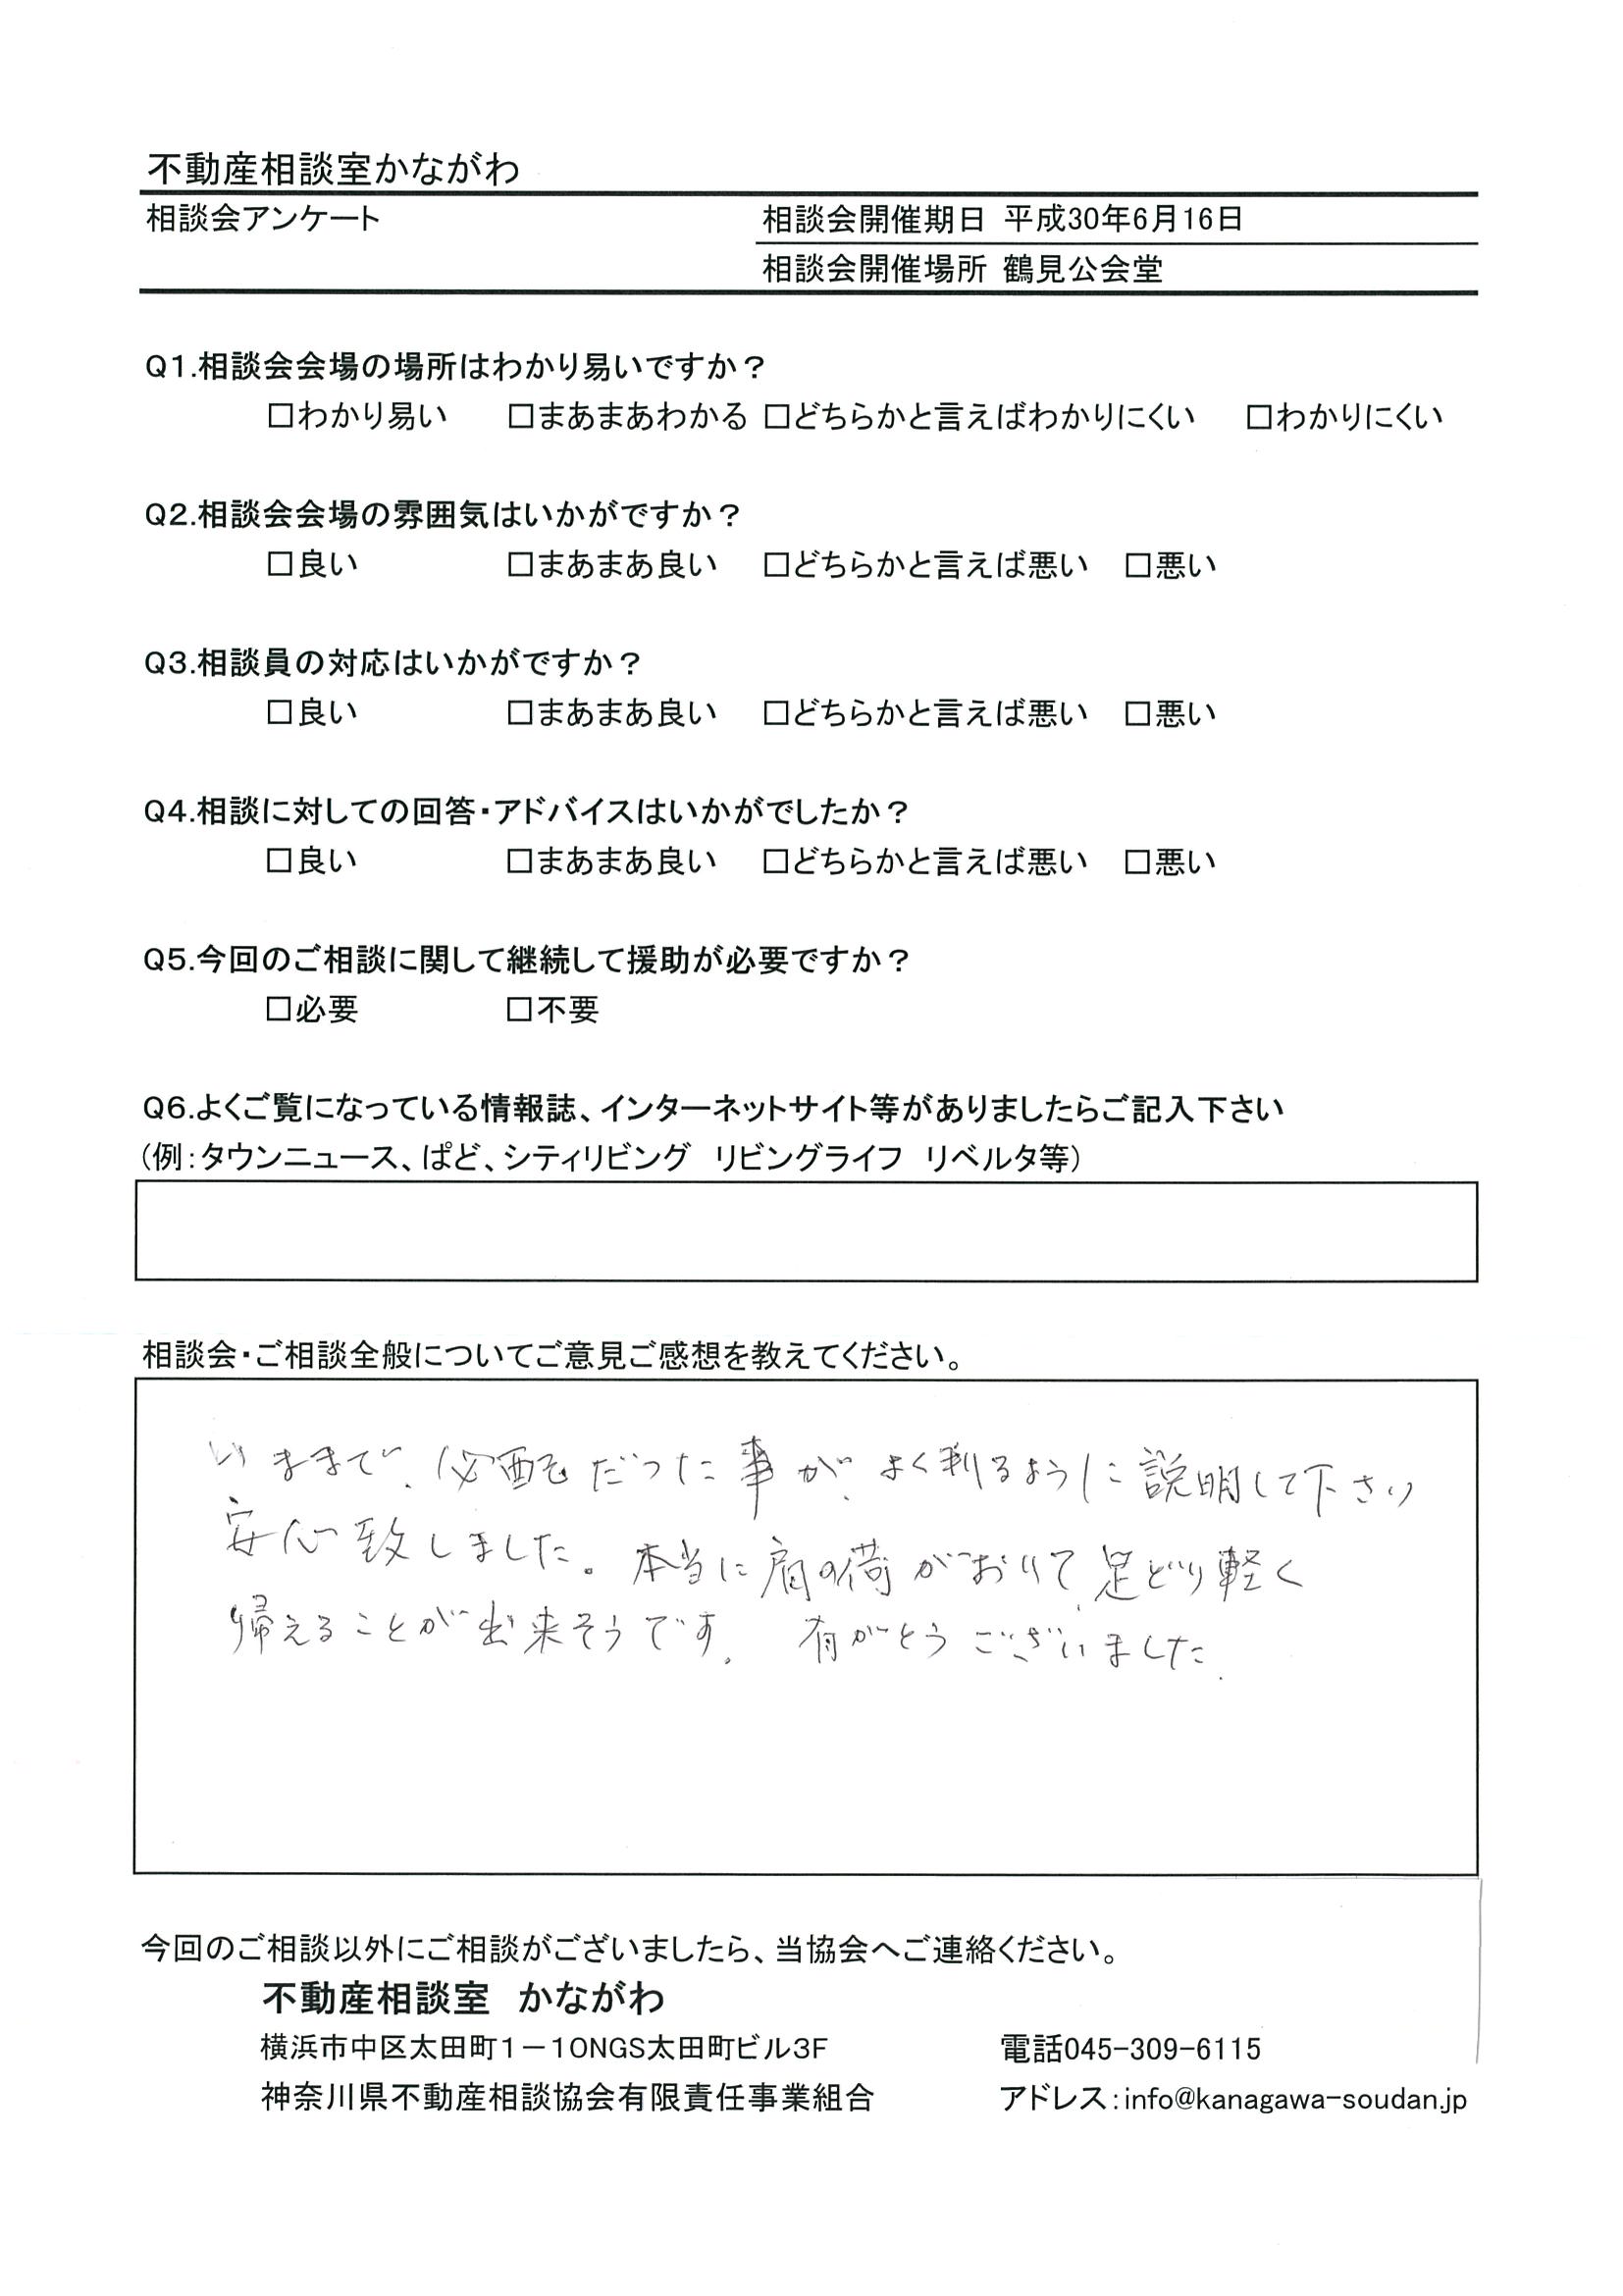 不動産相談室かながわ
相談会アンケート
相談会開催期日 平成30年6月16日
相談会開催場所 鶴見公会堂
Q1.相談会会場の場所はわかり易いですか？
□わかり易い □まあまあわかる □どちらかと言えばわかりにくい □わかりにくい
Q2.相談会会場の雰囲気はいかがですか？
□良い □まあまあ良い □どちらかと言えば悪い □悪い
Q3.相談員の対応はいかがですか？
□良い □まあまあ良い □どちらかと言えば悪い □悪い
Q4.相談に対しての回答・アドバイスはいかがでしたか？
□良い □まあまあ良い □どちらかと言えば悪い □悪い
Q5.今回のご相談に関して継続して援助が必要ですか？
□必要 □不要
Q6.よくご覧になっている情報誌、インターネットサイト等がありましたらご記入下さい
（例：タウンニュース、ぱど、シティリビング　リビングライフ　リベルタ等）
相談会・ご相談全般についてご意見ご感想を教えてください。
いままで、心配だった事が、よく判るように説明して下さい
安心致しました。本当に肩の荷がおりて、足どり軽く
帰えることが出来そうです。 有がとうございました。
今回のご相談以外にご相談がございましたら、当協会へご連絡ください。
不動産相談室　かながわ
横浜市中区太田町１－１０NGS太田町ビル３F
電話045-309-6115
神奈川県不動産相談協会有限責任事業組合
アドレス：info@kanagawa-soudan.jp